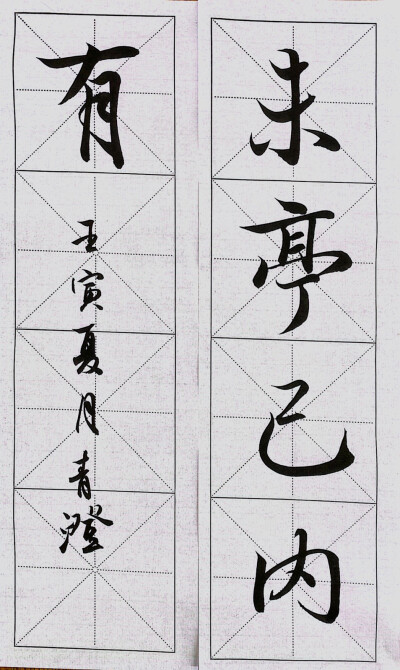 未亭已内
有
壬寅夏月青澄